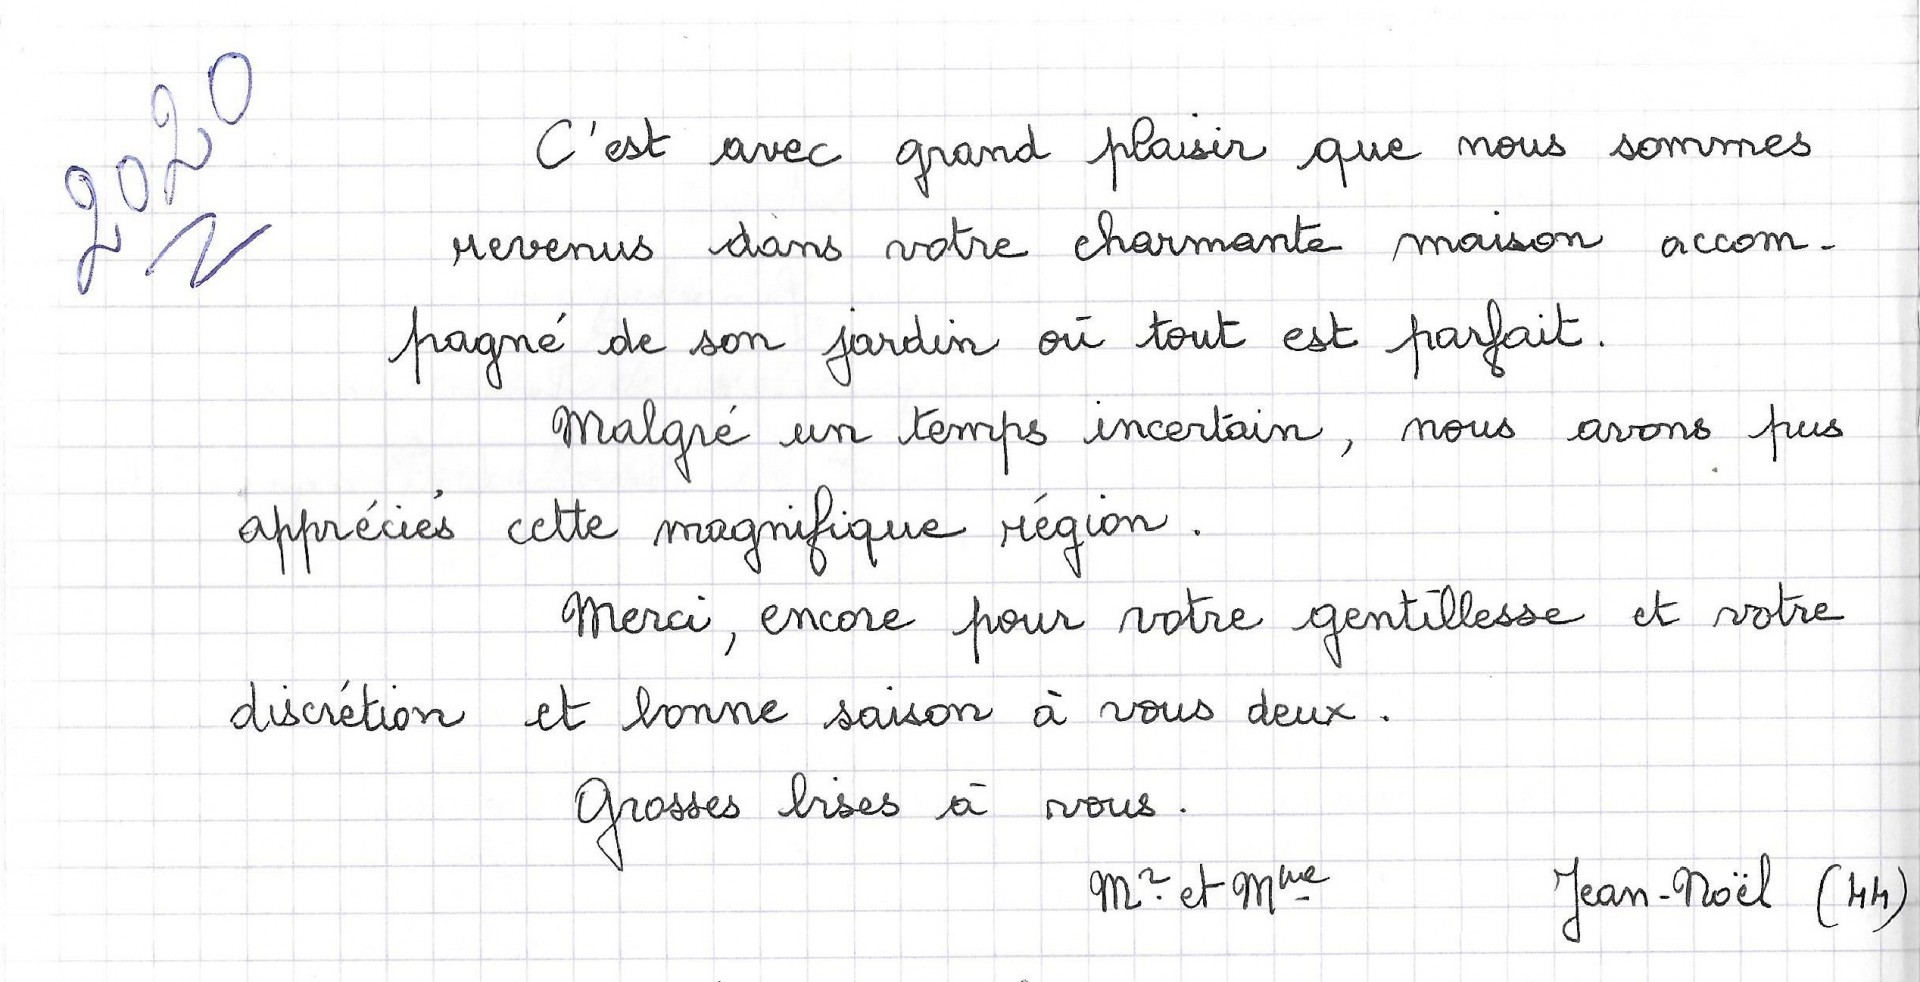 2020
C'est avec grand plaisir que nous sommes
revenus dans votre charmante maison accom-
pagné de son jardin où tout est parfait.
Malgré un temps incertain, nous avons pus
appréciés cette magnifique région.
Merci, encore pour votre gentillesse et votre
discrétion et bonne saison à vous deux.
Grosses bises à vous.
Mr. et Mme Jean-Noël (44)